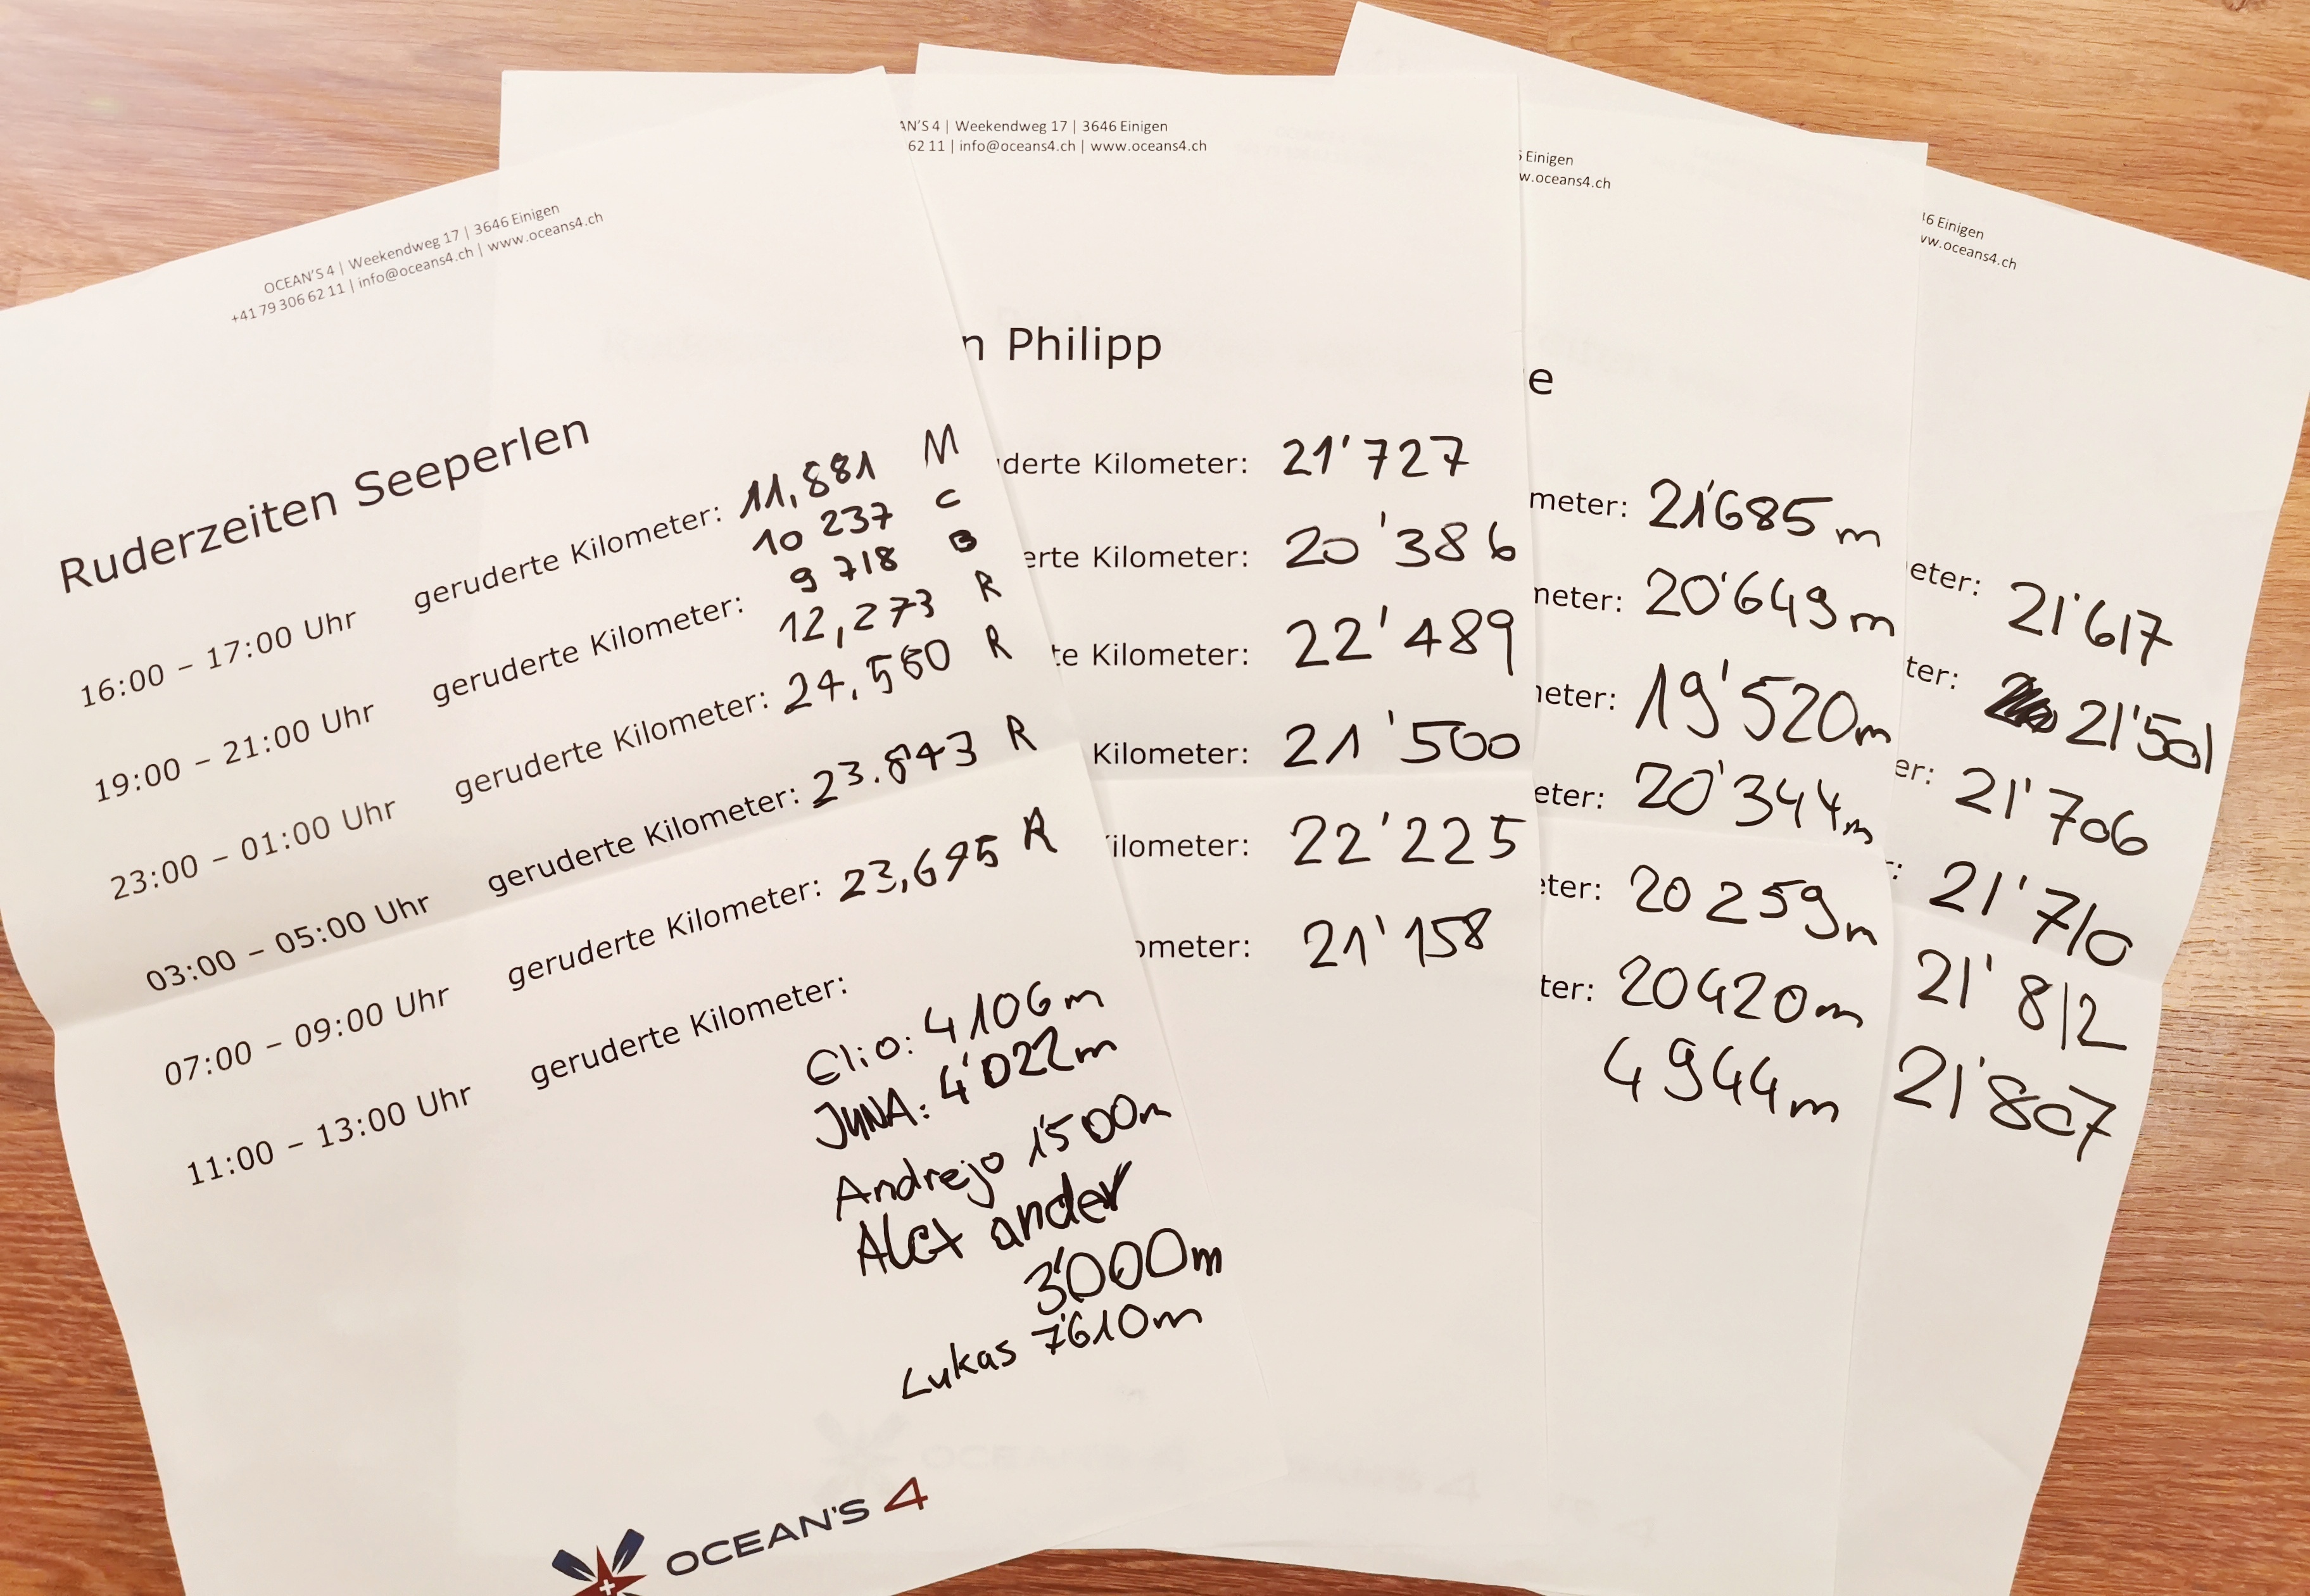 OCEAN'S 4 | Weekendweg 17 | 3646 Einigen
+41 79 306 62 11 | info@oceans4.ch | www.oceans4.ch
Ruderzeiten Seeperlen
16:00 – 17:00 Uhr geruderte Kilometer: 11,881 M
10 237 C
19:00 – 21:00 Uhr geruderte Kilometer: 9 718 B
12,273 R
23:00 – 01:00 Uhr geruderte Kilometer: 24,560 R
03:00 – 05:00 Uhr geruderte Kilometer: 23.843 R
07:00 – 09:00 Uhr geruderte Kilometer: 23,695 R
11:00 – 13:00 Uhr geruderte Kilometer:
Elio: 4106m
JUNA: 4'022m
Andrejo 1'500m
Alexander
3'000m
Lukas 7'610m
OCEAN'S 4
AN'S 4 | Weekendweg 17 | 3646 Einigen
62 11 | info@oceans4.ch | www.oceans4.ch
n Philipp
derte Kilometer: 21'727
erte Kilometer: 20'386
te Kilometer: 22'489
Kilometer: 21'500
ilometer: 22'225
ometer: 21'158
6 Einigen
w.oceans4.ch
e
meter: 21'685 m
meter: 20'649 m
neter: 19'520m
eter: 20'344m
eter: 20 259m
ter: 20420m
4944m
46 Einigen
ww.oceans4.ch
eter: 21'617
ter: 21'501
er: 21'706
: 21'710
21'812
21'807